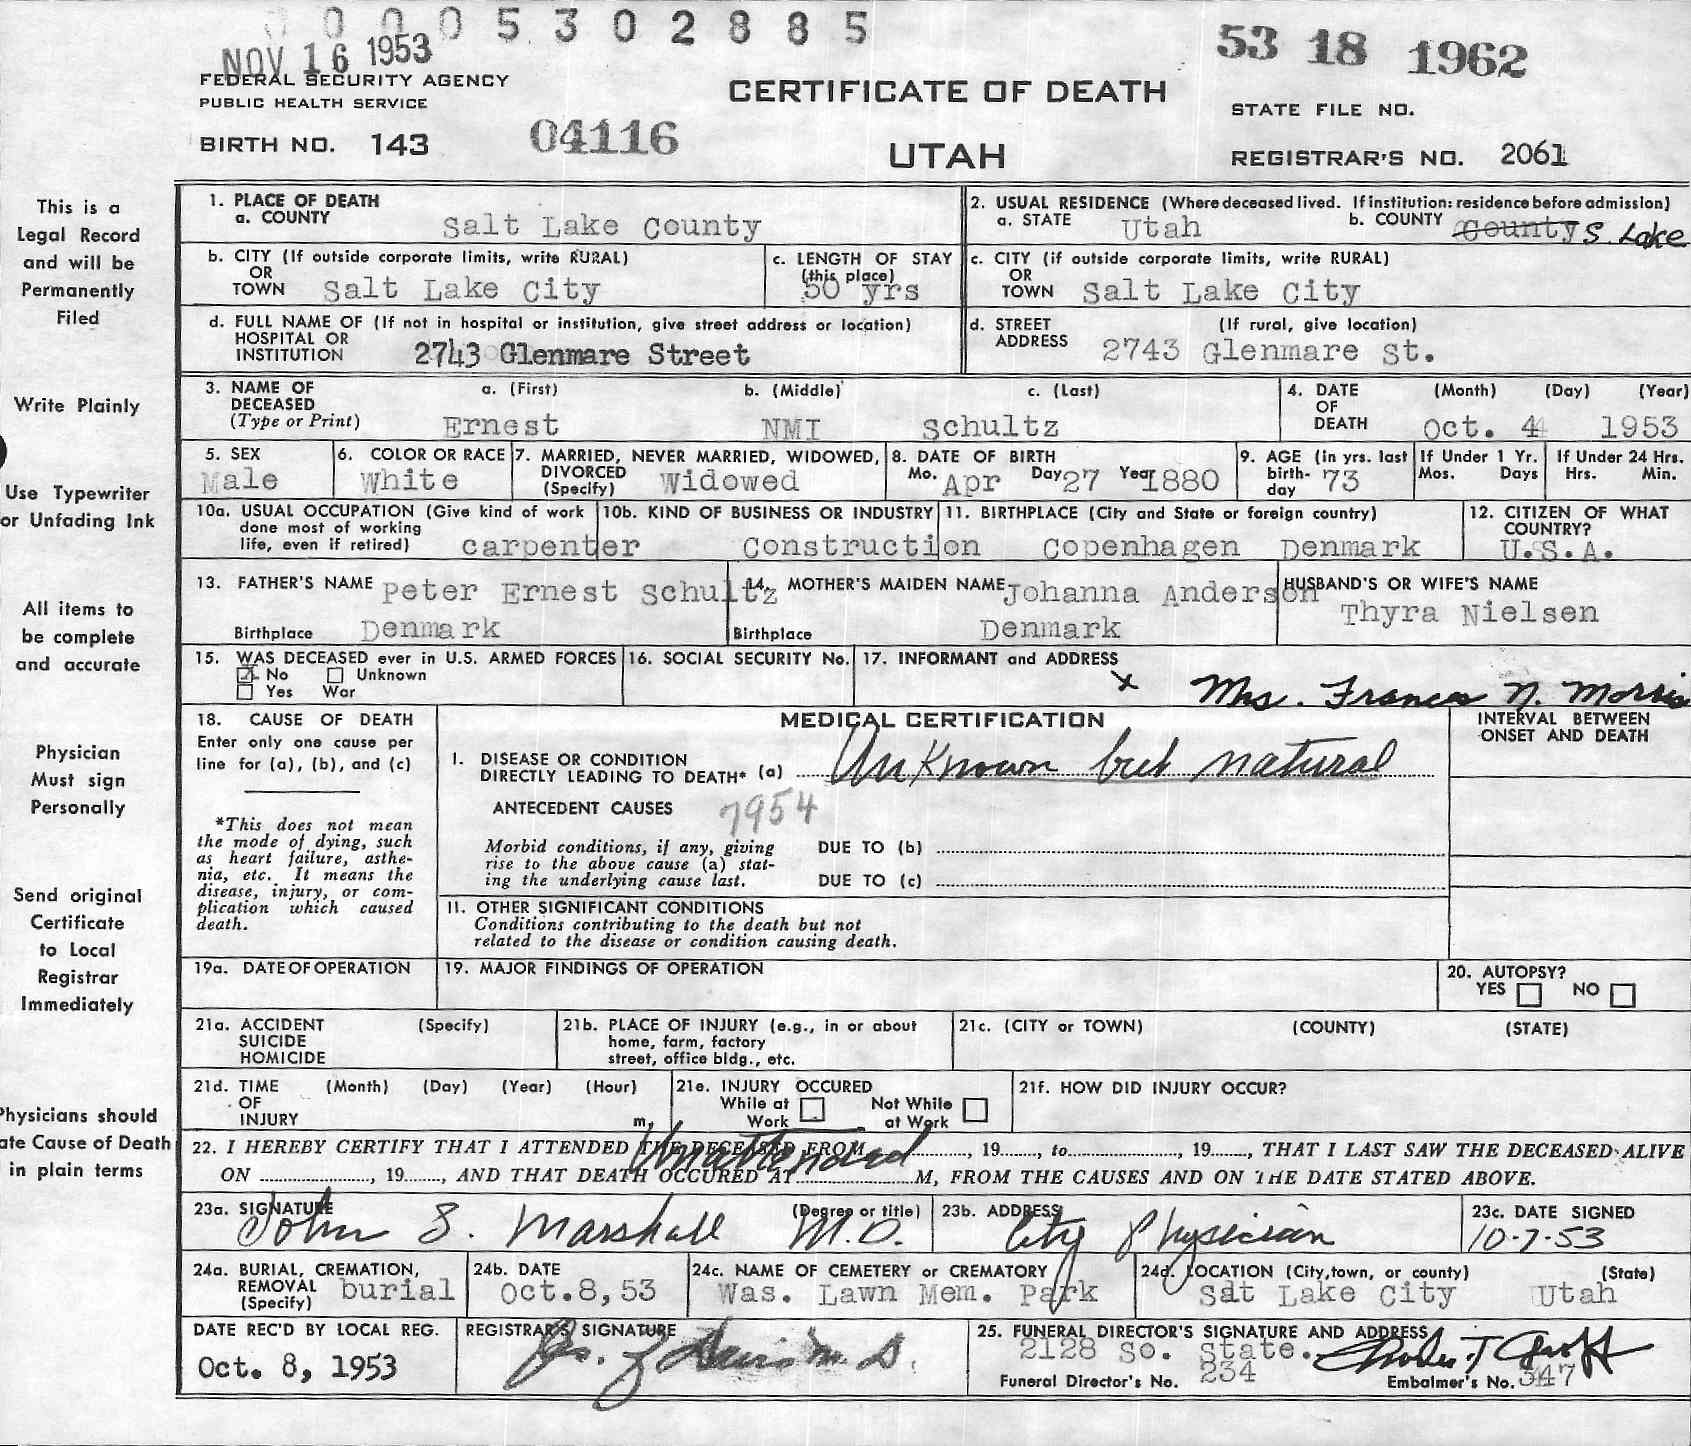 0 0 0 5 3 0 2 8 8 5
NOV 16 1953
53 18 1962
FEDERAL SECURITY AGENCY
PUBLIC HEALTH SERVICE
CERTIFICATE OF DEATH
STATE FILE NO.
BIRTH NO. 143
04116
UTAH
REGISTRAR'S NO. 2061
This is a
Legal Record
and will be
Permanently
Filed
Write Plainly
Use Typewriter
or Unfading Ink
All items to
be complete
and accurate
Physician
Must sign
Personally
Send original
Certificate
to Local
Registrar
Immediately
Physicians should
ate Cause of Death
in plain terms
1. PLACE OF DEATH
a. COUNTY Salt Lake County
2. USUAL RESIDENCE (Where deceased lived. If institution: residence before admission)
a. STATE Utah b. COUNTY County S. Lake
b. CITY (If outside corporate limits, write RURAL)
OR
TOWN Salt Lake City
c. LENGTH OF STAY
(this place)
50 yrs
c. CITY (if outside corporate limits, write RURAL)
OR
TOWN Salt Lake City
d. FULL NAME OF (If not in hospital or institution, give street address or location)
HOSPITAL OR
INSTITUTION 2743 Glenmare Street
d. STREET (If rural, give location)
ADDRESS 2743 Glenmare St.
3. NAME OF a. (First) b. (Middle) c. (Last)
DECEASED
(Type or Print) Ernest NMI Schultz
4. DATE (Month) (Day) (Year)
OF
DEATH Oct. 4 1953
5. SEX
Male
6. COLOR OR RACE
White
7. MARRIED, NEVER MARRIED, WIDOWED,
DIVORCED
(Specify) Widowed
8. DATE OF BIRTH
Mo. Apr Day 27 Year 1880
9. AGE (in yrs. last
birth- 73
day
If Under 1 Yr.
Mos. Days
If Under 24 Hrs.
Hrs. Min.
10a. USUAL OCCUPATION (Give kind of work
done most of working
life, even if retired) carpenter
10b. KIND OF BUSINESS OR INDUSTRY
Construction
11. BIRTHPLACE (City and State or foreign country)
Copenhagen Denmark
12. CITIZEN OF WHAT
COUNTRY?
U.S.A.
13. FATHER'S NAME Peter Ernest Schultz
Birthplace Denmark
14. MOTHER'S MAIDEN NAME Johanna Anderson
Birthplace Denmark
HUSBAND'S OR WIFE'S NAME
Thyra Nielsen
15. WAS DECEASED ever in U.S. ARMED FORCES
No Unknown
Yes War
16. SOCIAL SECURITY No.
17. INFORMANT and ADDRESS
x Mrs. Frances N. Morris
18. CAUSE OF DEATH
Enter only one cause per
line for (a), (b), and (c)
*This does not mean
the mode of dying, such
as heart failure, asthe-
nia, etc. It means the
disease, injury, or com-
plication which caused
death.
MEDICAL CERTIFICATION
INTERVAL BETWEEN
ONSET AND DEATH
I. DISEASE OR CONDITION
DIRECTLY LEADING TO DEATH* (a) Unknown but natural
ANTECEDENT CAUSES 7954
Morbid conditions, if any, giving
rise to the above cause (a) stat-
ing the underlying cause last.
DUE TO (b)
DUE TO (c)
11. OTHER SIGNIFICANT CONDITIONS
Conditions contributing to the death but not
related to the disease or condition causing death.
19a. DATE OF OPERATION
19. MAJOR FINDINGS OF OPERATION
20. AUTOPSY?
YES NO
21a. ACCIDENT (Specify)
SUICIDE
HOMICIDE
21b. PLACE OF INJURY (e.g., in or about
home, farm, factory
street, office bldg., etc.
21c. (CITY or TOWN) (COUNTY) (STATE)
21d. TIME (Month) (Day) (Year) (Hour)
OF
INJURY m,
21e. INJURY OCCURED
While at Not While
Work at Work
21f. HOW DID INJURY OCCUR?
22. I HEREBY CERTIFY THAT I ATTENDED THE DECEASED FROM Unattended, 19......, to..................., 19......, THAT I LAST SAW THE DECEASED ALIVE
ON ..................., 19......, AND THAT DEATH OCCURED AT...................M, FROM THE CAUSES AND ON THE DATE STATED ABOVE.
23a. SIGNATURE (Degree or title)
John S. Marshall M.D.
23b. ADDRESS
City Physician
23c. DATE SIGNED
10-7-53
24a. BURIAL, CREMATION,
REMOVAL burial
(Specify)
24b. DATE
Oct.8,53
24c. NAME OF CEMETERY or CREMATORY
Was. Lawn Mem. Park
24d. LOCATION (City, town, or county) (State)
Salt Lake City Utah
DATE REC'D BY LOCAL REG.
Oct. 8, 1953
REGISTRAR'S SIGNATURE
M. D.
25. FUNERAL DIRECTOR'S SIGNATURE AND ADDRESS
2128 So. State.
Funeral Director's No. 234 Embalmer's No. 347